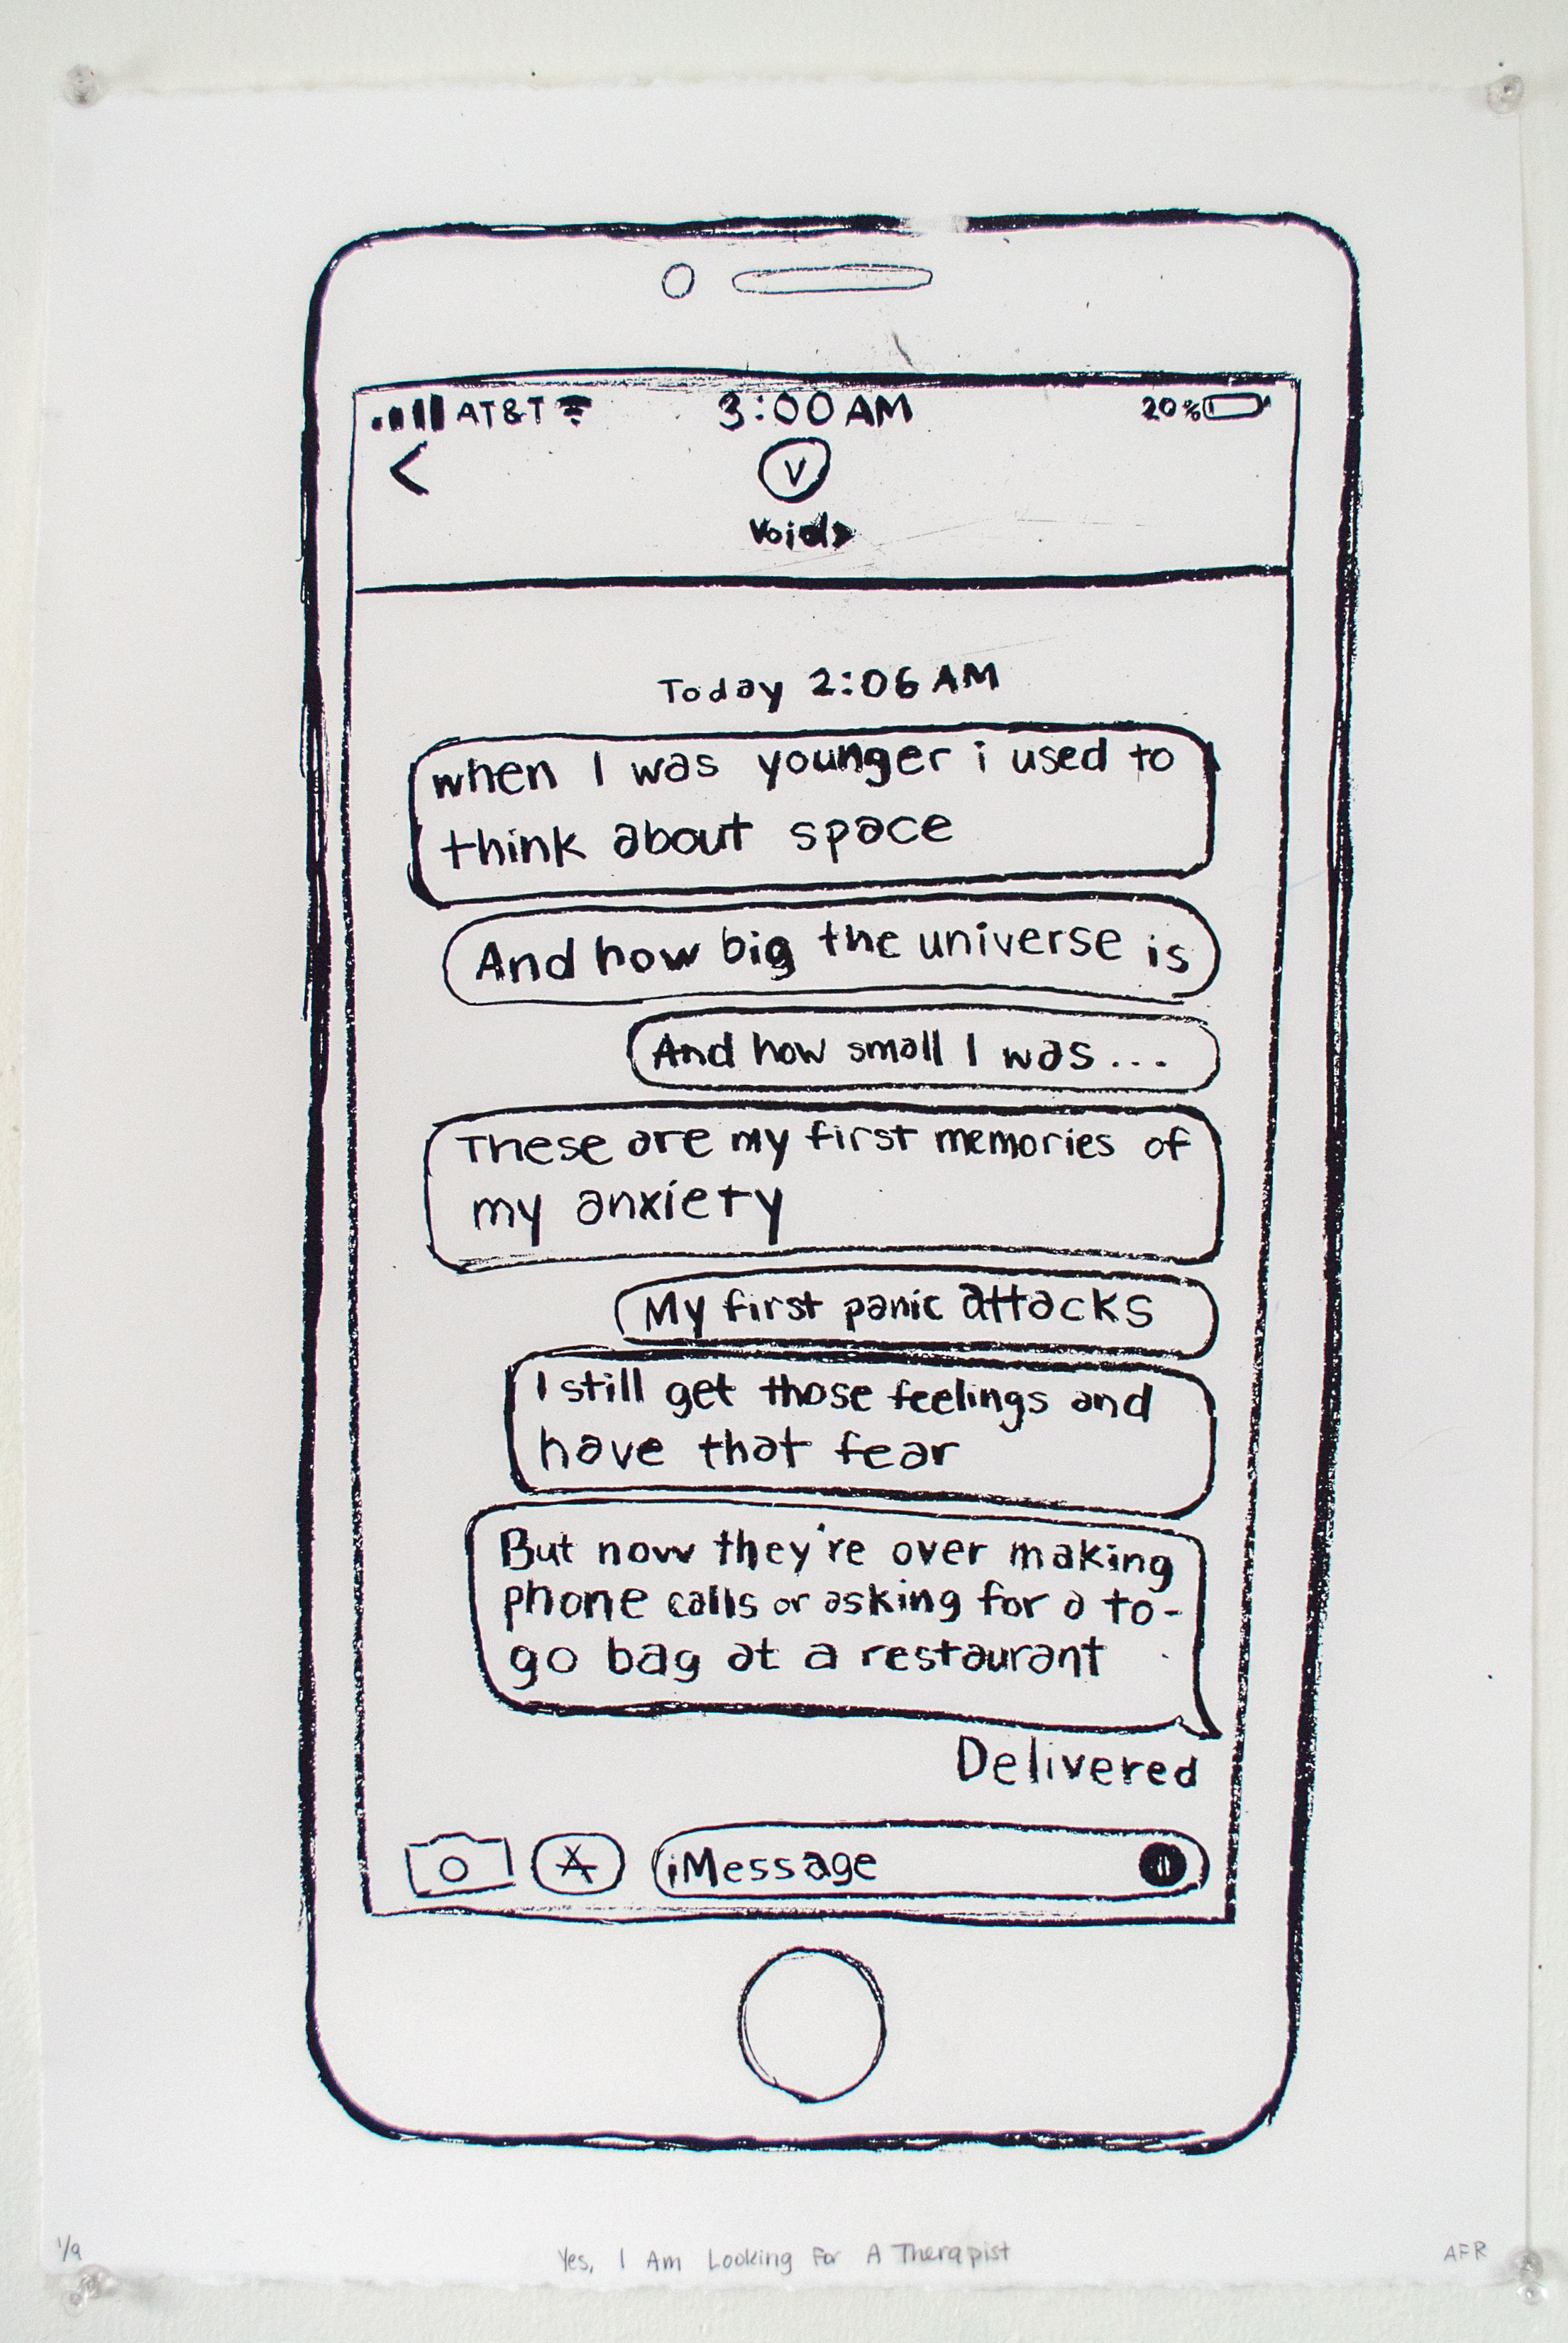 AT&T 3:00 AM 20%
<
V
Void>
Today 2:06 AM
when I was younger i used to
think about space
And how big the universe is
And how small I was...
These are my first memories of
my anxiety
My first panic attacks
I still get those feelings and
have that fear
But now they're over making
phone calls or asking for a to-
go bag at a restaurant
Delivered
A iMessage
1/9 Yes, I Am Looking For A Therapist AFR